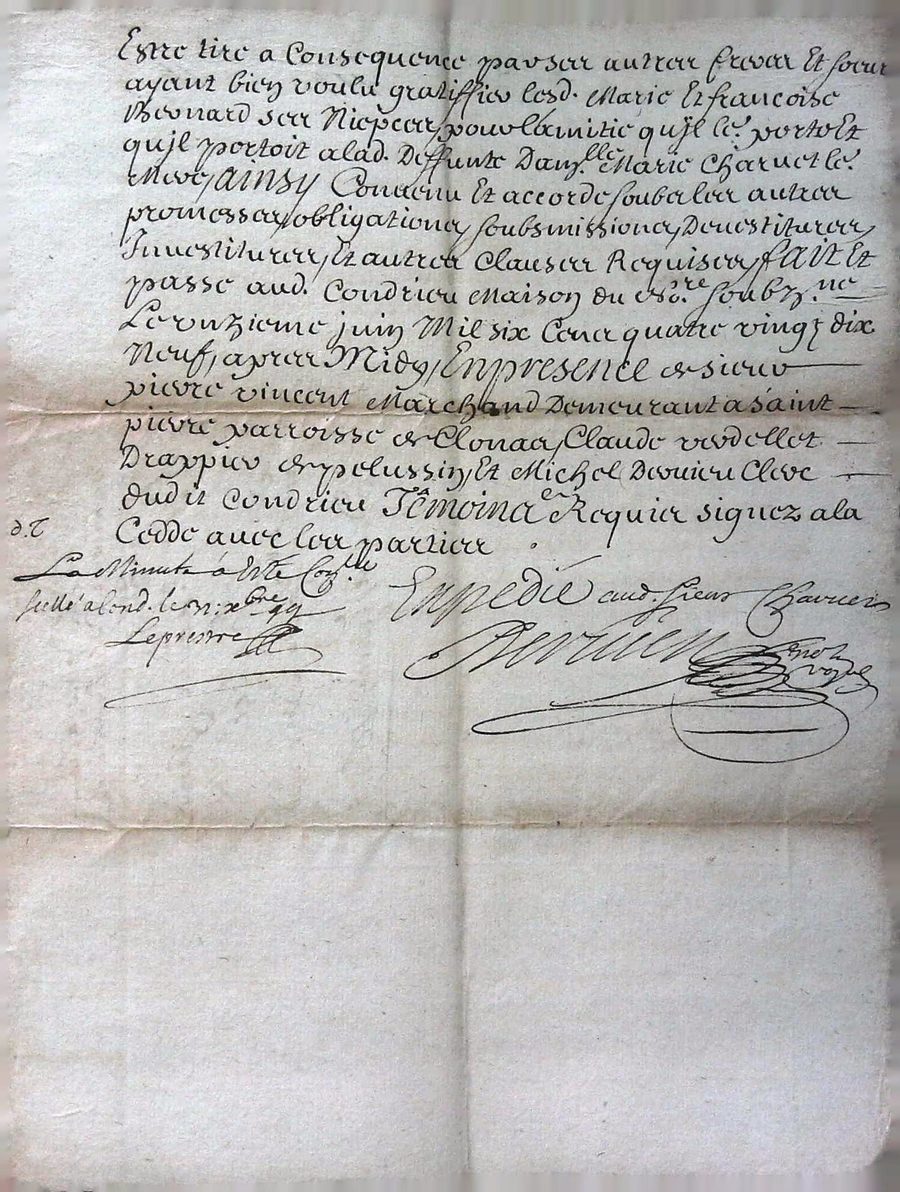 Estre tiré a Consequence par ses autres freres Et soeurs
ayant bien voulu gratiffier lesd. Marie Et francoise
Bernard ses Niepces, pour lamitié qu'jl le.r porte Et
qu'jl portoit a lad. Deffunte Dam.lle Marie Charvet le.r
Mere, Ainsy Convenu Et accordé soubz les autres
promesses, obligations, soubsmissions, Devestitures,
Investitures, Et autres Clauses Requises, fait Et
passé aud. Condrieu Maison du no.re soubz.ne
Le unzieme juin Mil six Cens quatre vingt dix
Neuf, apres Midy, En presence de sieur
pierre vincent Marchand Demeurant a saint
pierre parroisse de Clonas, Claude verdellet
Drappier de pelussin, Et Michel Dervieu Clerc
dud it Condrieu Têmoins Requis signez a la
Cedde avec les parties
d. T
La Minute a Esté Con.lée
scellé a Cond. le xbre 99
Leprestre
Expedié aud. sieur Charvet
Dervieu
not.
royal